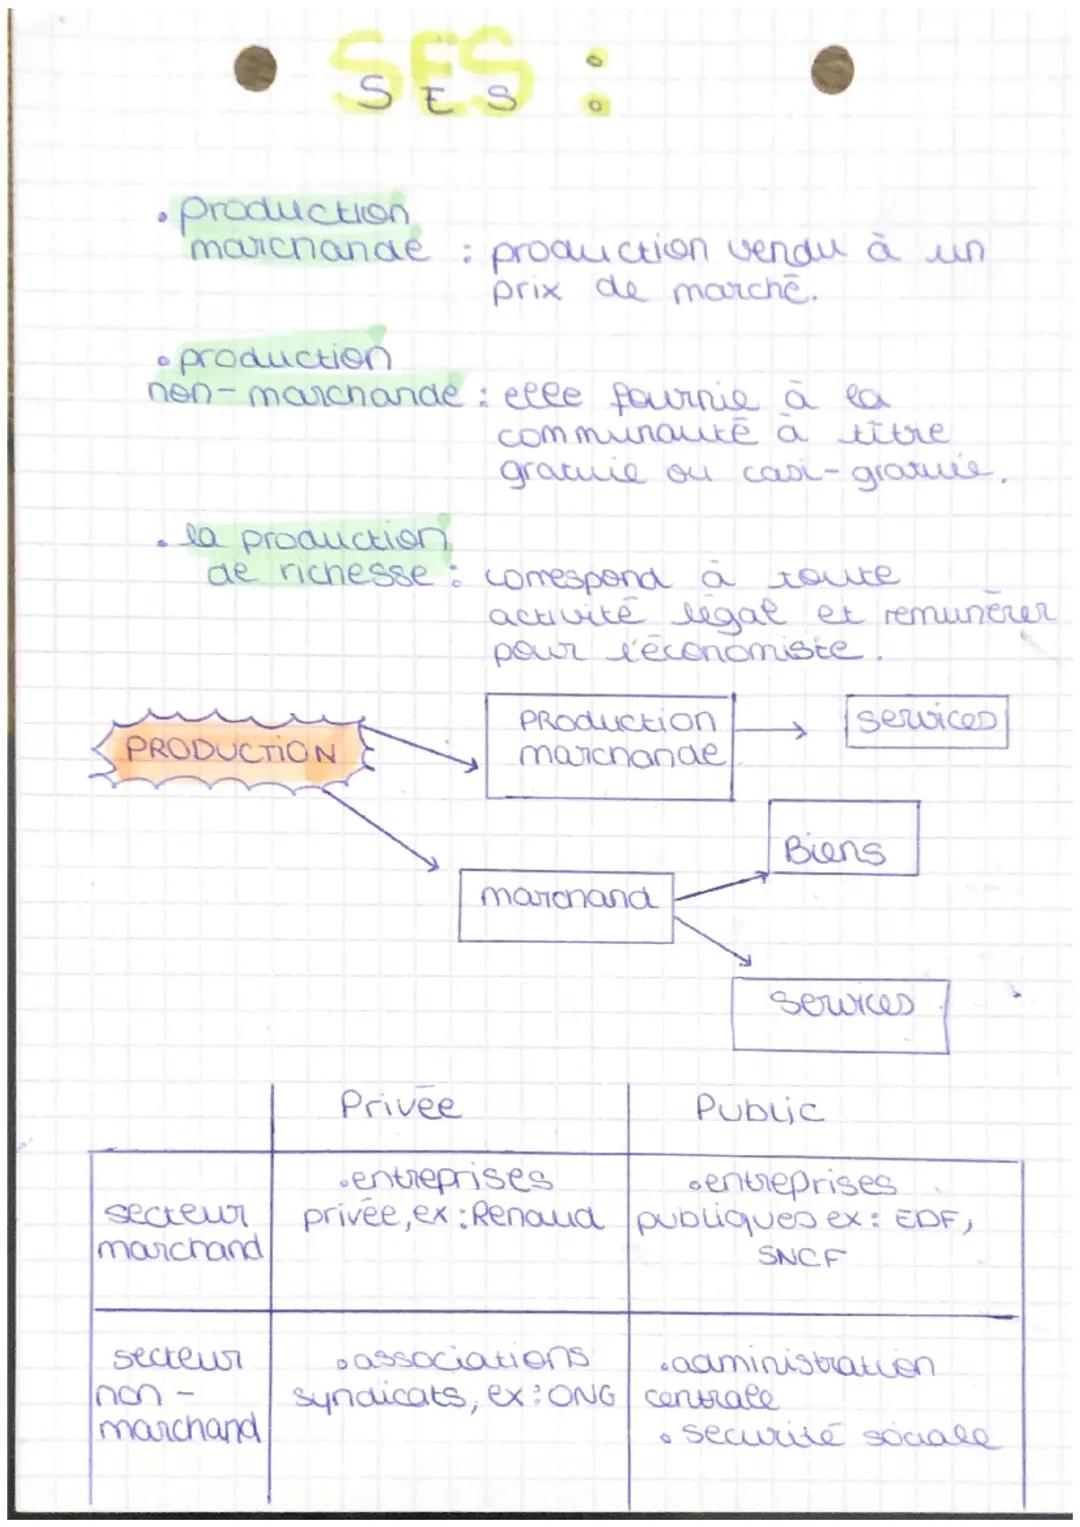 SES :
S E S
• production
marchande : production vendu à un
prix de marché.
• production
non-marchande : elle fournie à la
communauté à titre
gratuie ou casi-gratuie.
• la production
de richesse : correspond à toute
activité légal et remunérer
pour l'économiste.
PRODUCTION
PRODUCTION
marchande
services
Biens
marchand
services
Privée Public
• entreprises • entreprises
secteur privée, ex : Renaud publiques ex : EDF,
marchand SNCF
secteur • associations • administration
non- syndicats, ex : ONG centrale
marchand • securité sociale